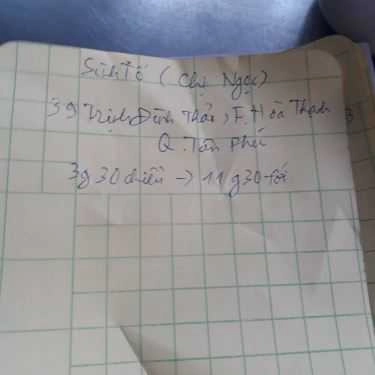 Sinh Tố (Chị Ngọc)
39 Trịnh Đình Thảo, F. Hoà Thạnh
Q. Tân Phú
3g30 chiều → 11g30 tối